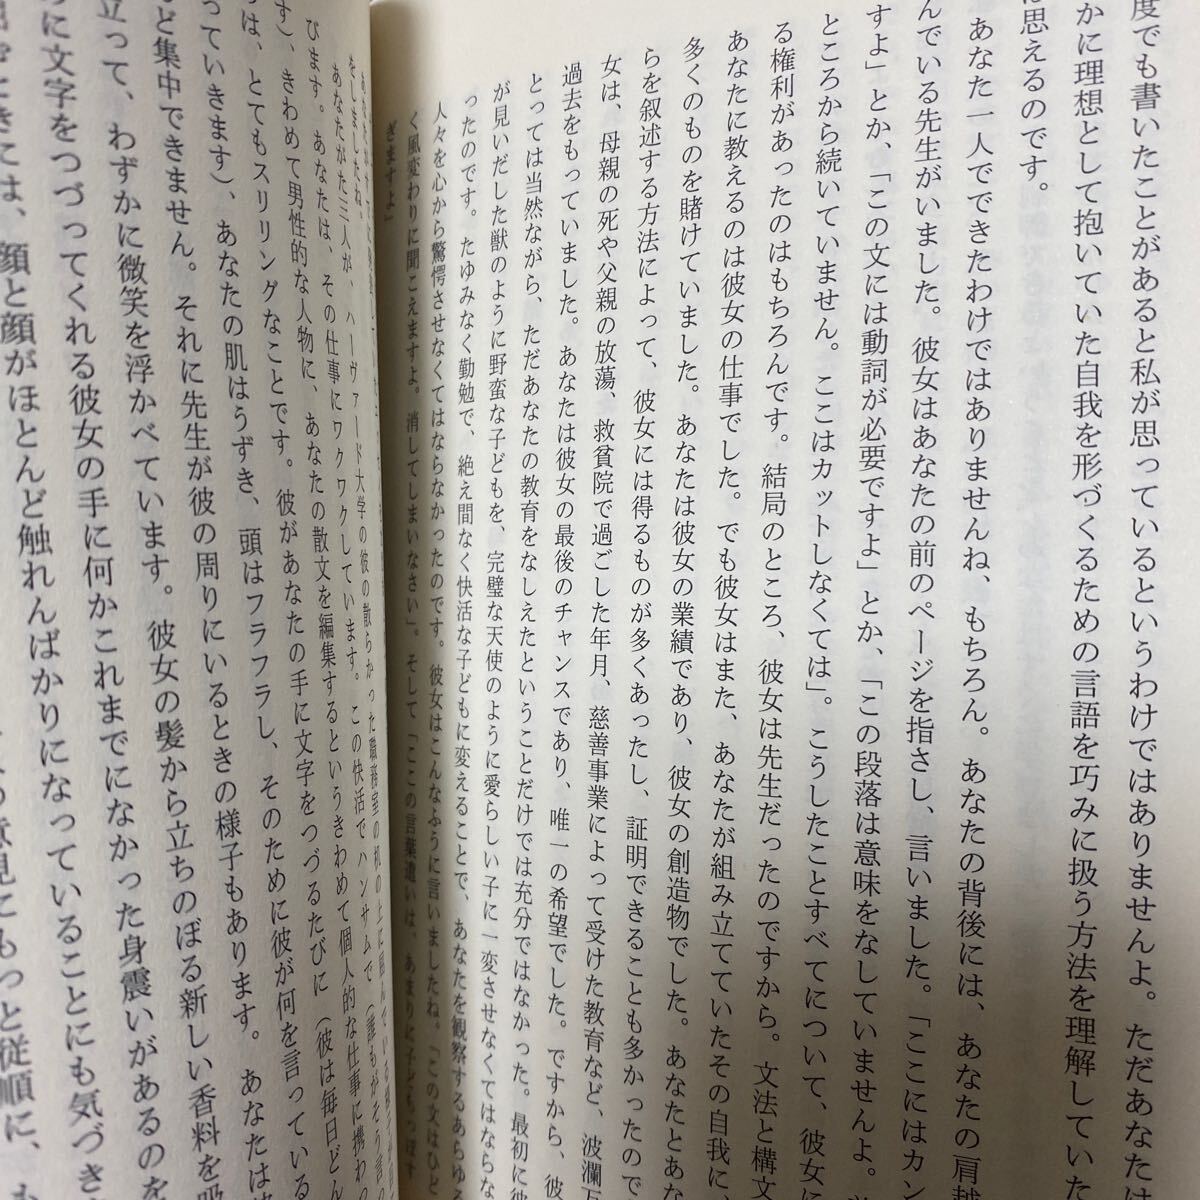 度でも書いたことがあると私が思っているというわけではありませんよ。ただあなたは
かに理想として抱いていた自我を形づくるための言語を巧みに扱う方法を理解していた
は思えるのです。
あなた一人でできたわけではありませんね、もちろん。あなたの背後には、あなたの肩越
んでいる先生がいました。彼女はあなたの前のページを指さし、言いました。「ここにはカン
すよ」とか、「この文には動詞が必要ですよ」とか、「この段落は意味をなしていませんよ。
ところから続いていません。ここはカットしなくては」。こうしたことすべてについて、彼女に
る権利があったのはもちろんです。結局のところ、彼女は先生だったのですから。文法と構文
あなたに教えるのは彼女の仕事でした。でも彼女はまた、あなたが組み立てていたその自我に、
多くのものを賭けていました。あなたは彼女の業績であり、彼女の創造物でした。あなたとあな
らを叙述する方法によって、彼女には得るものが多くあったし、証明できることも多かったので
女は、母親の死や父親の放蕩、救貧院で過ごした年月、慈善事業によって受けた教育など、波瀾万
過去をもっていました。あなたは彼女の最後のチャンスであり、唯一の希望でした。ですから、彼
とっては当然ながら、ただあなたの教育をなしえたということだけでは充分ではなかった。最初に彼
が見いだした獣のように野蛮な子どもを、完璧な天使のように愛らしい子に一変させなくてはならな
ったのです。たゆみなく勤勉で、絶え間なく快活な子どもに変えることで、あなたを観察するあらゆる
人々を心から驚愕させなくてはならなかったのです。彼女はこんなふうに言いましたね。「この文はひど
く風変わりに聞こえますよ。消してしまいなさい」。そして「ここの言葉遣いは、あまりに子どもっぽす
ぎますよ」
をしましたね。
あなたがた三人が、ハーヴァード大学の彼の散らかった職務室の机の上に屈んでいる様子が
びます。あなたは、その仕事にワクワクしています。この快活でハンサムで（誰もがそう言の
す）、きわめて男性的な人物に、あなたの散文を編集するというきわめて個人的な仕事に携わっ
は、とてもスリリングなことです。彼があなたの手に文字をつづるたびに（彼は毎日どん
っていきます）、あなたの肌はうずき、頭はフラフラし、そのために彼が何を言っている
ど集中できません。それに先生が彼の周りにいるときの様子もあります。あなたは
立って、わずかに微笑を浮かべています。彼女の髪から立ちのぼる新しい香料を吸
に文字をつづってくれる彼女の手に何かこれまでになかった身震いがあるのを
ときには、顔と顔がほとんど触れんばかりになっていることにも気づき
意見にもっと従順に、も